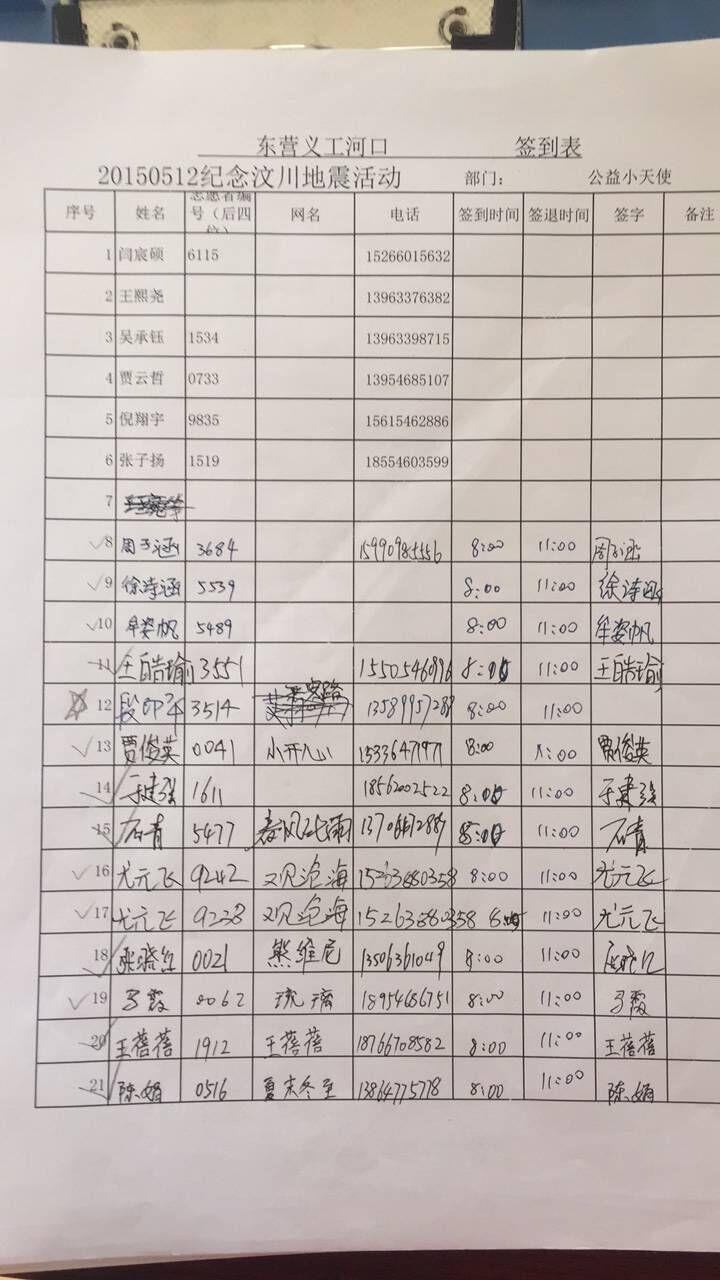 东营义工河口 签到表
20150512纪念汶川地震活动 部门： 公益小天使
序号 姓名 志愿者编号（后四位） 网名 电话 签到时间 签退时间 签字 备注
1 闫宸硕 6115 15266015632
2 王熙尧 13963376382
3 吴承钰 1534 13963398715
4 贾云哲 0733 13954685107
5 倪翔宇 9835 15615462886
6 张子扬 1519 18554603599
7
8 周子涵 3684 15990985556 8:00 11:00 周子涵
9 徐诗涵 5539 8:00 11:00 徐诗涵
10 牟姿帆 5489 8:00 11:00 牟姿帆
11 王皓瑜 3551 15505460896 8:00 11:00 王皓瑜
12 3514 8:00 11:00
13 贾俊英 0041 小开心 15336471971 8:00 11:00 贾俊英
14 于建强 1611 18562002522 8:00 11:00 于建强
15 石青 5477 春风化雨 8:00 11:00 石青
16 尤元飞 9242 观沧海 15263880358 8:00 11:00 尤元飞
17 尤元飞 9228 观沧海 15263880358 8:00 11:00 尤元飞
18 张晓红 0021 熊维尼 13506361049 8:00 11:00 张晓红
19 马霞 0062 琉璃 18954686751 8:00 11:00 马霞
20 王蓓蓓 1912 王蓓蓓 18766708582 8:00 11:00 王蓓蓓
21 陈娟 0516 夏末冬至 13864775778 8:00 11:00 陈娟